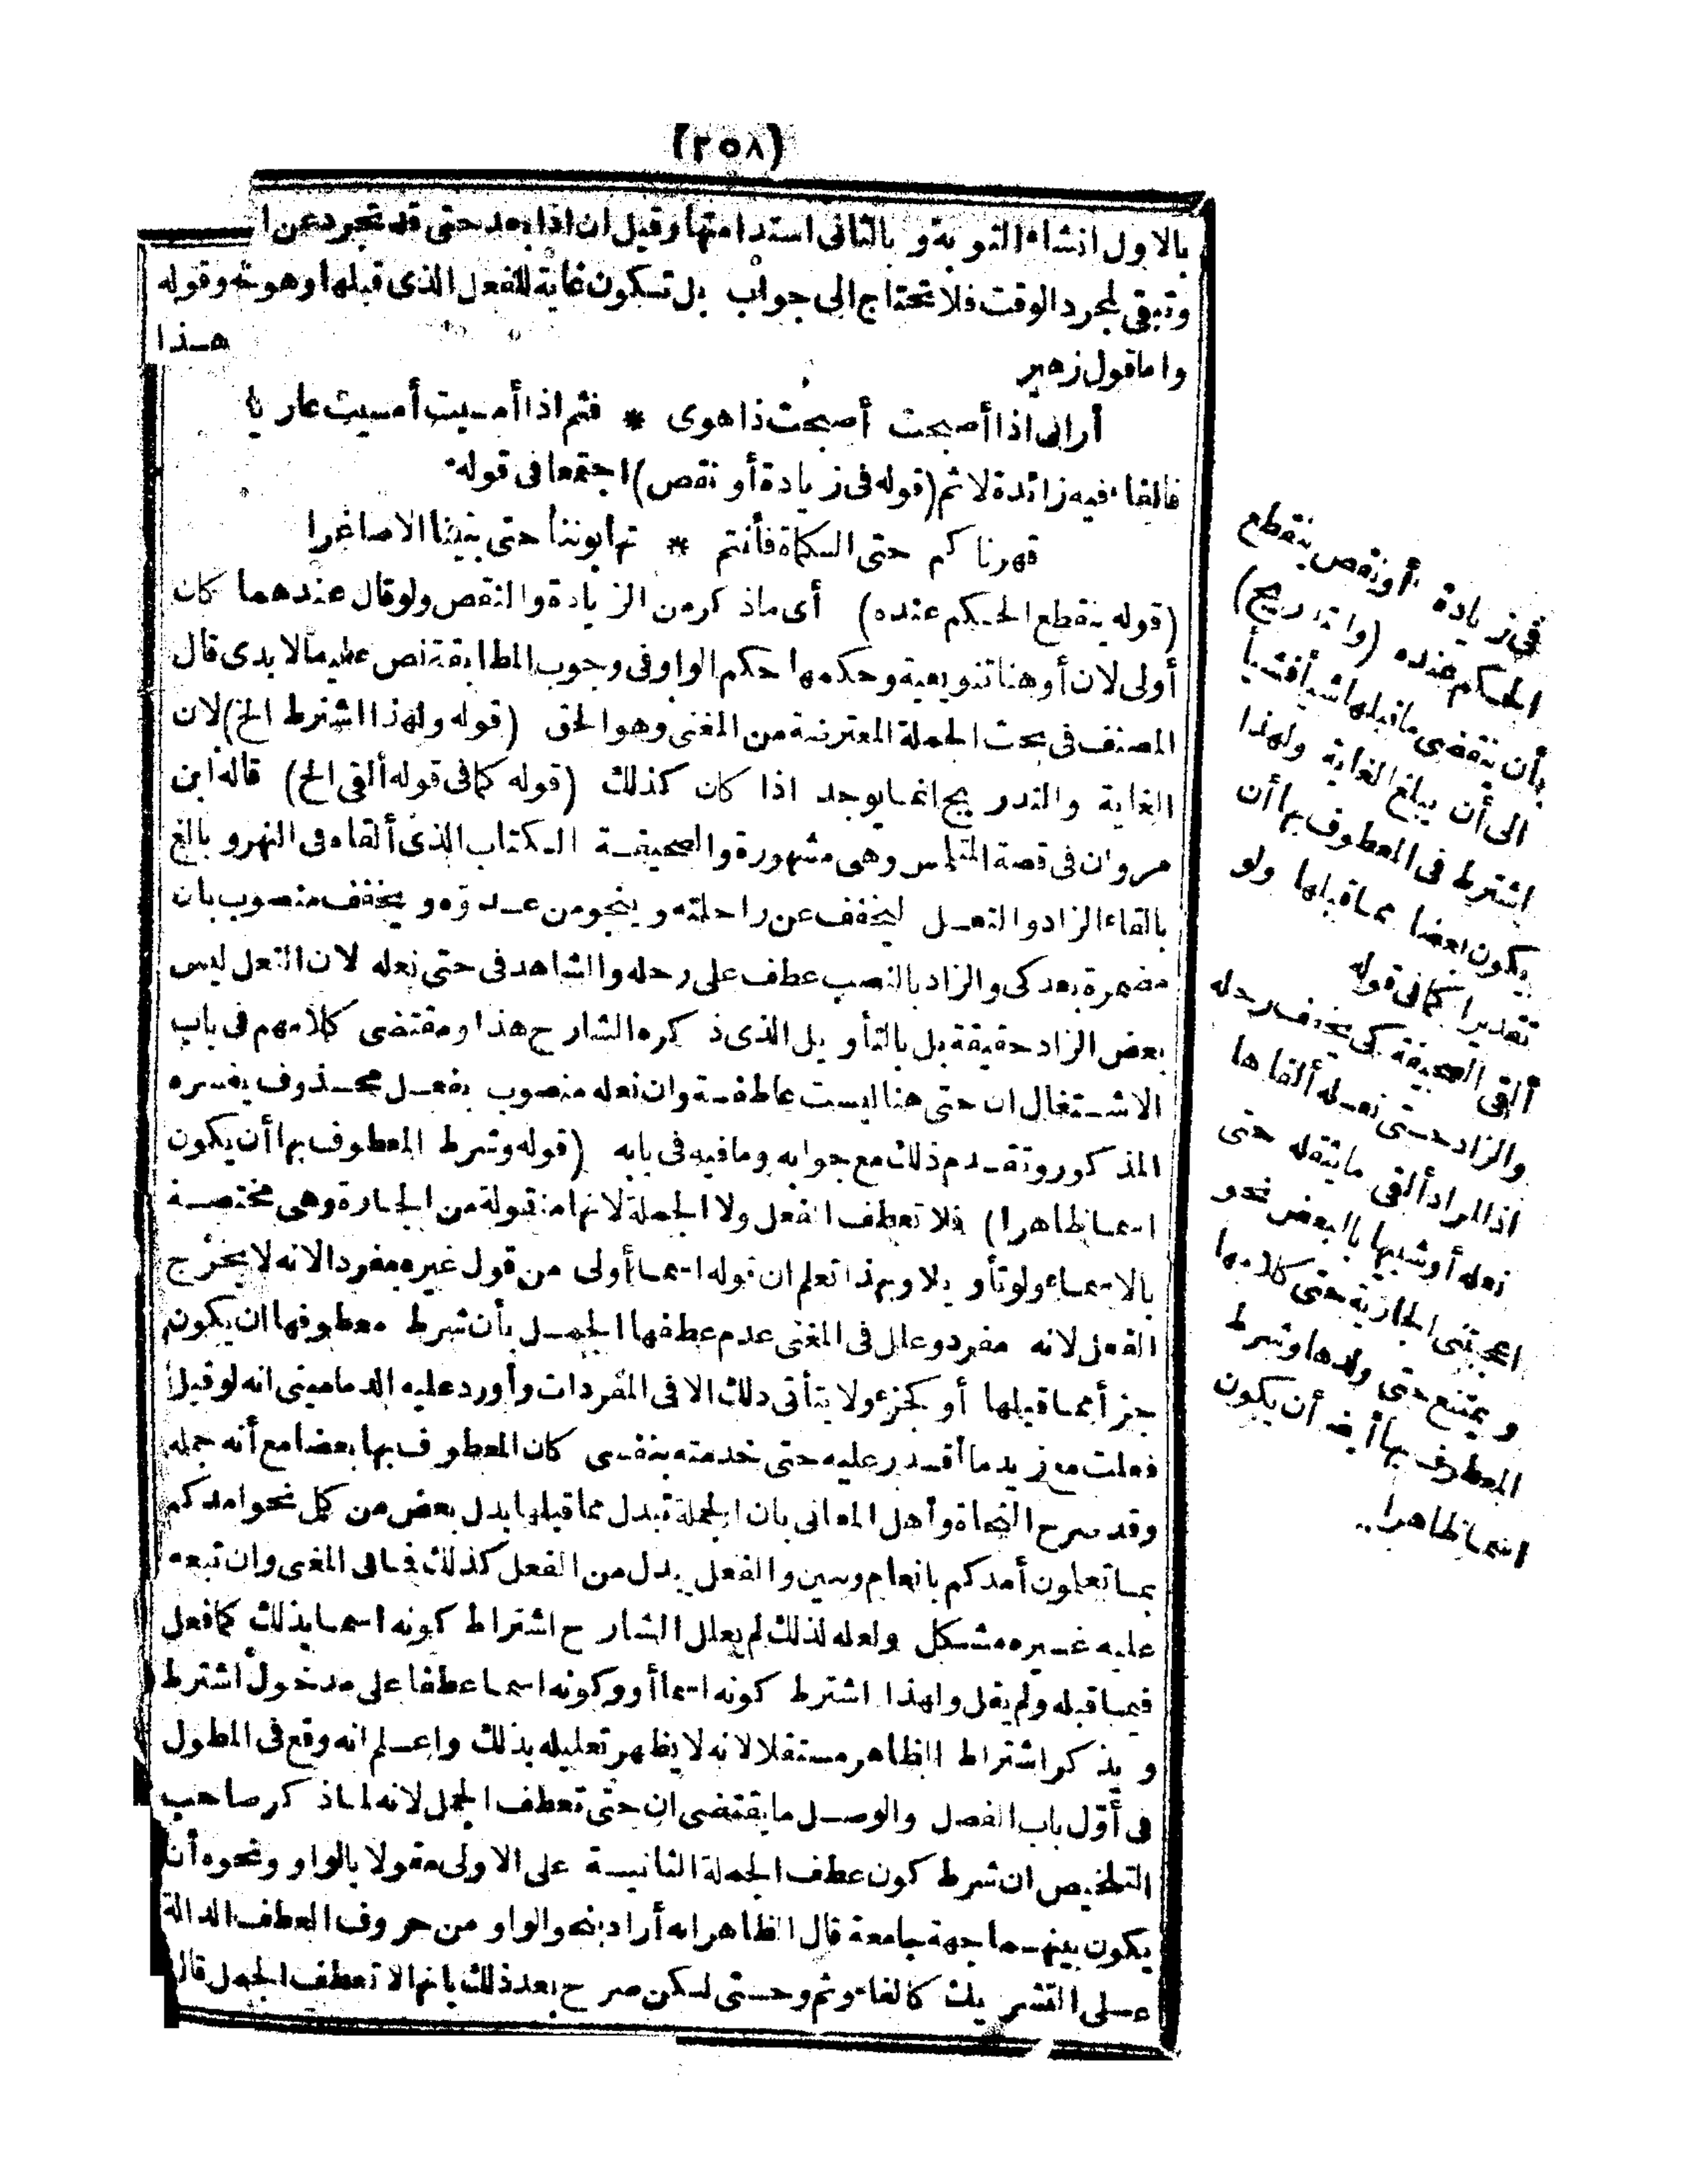 (٢٥٨)
بالاول انشاء التوبة و بالثانى استدامتها وقيل ان اذا بعد حتى قد تجرد عن ا
وتبقى لمجرد الوقت فلا تحتاج الى جواب بل تكون غاية للفعل الذى قبلها وهو وقوله
هذا
واما قول زهير
أرانى اذا أصبحت أصبحت ذا هوى * فثم اذا أمسيت أمسيت عاريا
فالفاء فيه زائدة لا ثم (قوله فى زيادة أو نقص) اجتمعا فى قوله
قهرناكم حتى الكماة فأنتم * تهابوننا حتى بنينا الاصاغرا
(قوله ينقطع الحكم عنده) أى ماذكر من الزيادة والنقص ولو قال عندهما كان
أولى لان أو هنا تنويعية وحكمها حكم الواو فى وجوب المطابقة نص عليه الابدى قال
المصنف فى بحث الجملة المعترضة من المغنى وهو الحق (قوله ولهذا اشترط الخ) لان
الغاية والتدريج انما يوجد اذا كان كذلك (قوله كما فى قوله ألقى الخ) قاله ابن
مروان فى قصة المتلمس وهى مشهورة والصحيفة الكتاب الذى ألقاه فى النهر وبالغ
بالقاء الزاد والنعل ليخفف عن راحلته وينجو من عدوّه ويخفف منصوب بان
مضمرة بعد كى والزاد بالنصب عطف على رحله والشاهد فى حتى نعله لان النعل ليس
بعض الزاد حقيقة بل بالتأويل الذى ذكره الشارح هذا ومقتضى كلامهم فى باب
الاشتغال ان حتى هنا ليست عاطفة وان نعله منصوب بفعل محذوف يفسره
المذكور وتقدم ذلك مع جوابه ومافيه فى بابه (قوله وشرط المعطوف بها أن يكون
اسما ظاهرا) فلا تعطف الفعل ولا الجملة لانها منقولة من الجارة وهى مختصة
بالاسماء ولو تأويلا وبهذا تعلم ان قوله اسما أولى من قول غيره مفردا لانه لا يخرج
الفعل لانه مفرد وعلل فى المغنى عدم عطفها الجمل بأن شرط معطوفها ان يكون
جزأ مما قبلها أو كجزء ولا يتأتى ذلك الا فى المفردات وأورد عليه الدمامينى انه لو قيل
فعلت مع زيد ما أقدر عليه حتى خدمته بنفسى كان المعطوف بها بعضا مع أنه جملة
وقد صرح النحاة وأهل المعانى بان الجملة تبدل مما قبلها بدل بعض من كل نحو امدكم
بما تعلمون أمدكم بانعام وبنين والفعل يبدل من الفعل كذلك فما فى المغنى وان تبعه
عليه غيره مشكل ولعله لذلك لم يعلل الشارح اشتراط كونه اسما بذلك كما فعل
فيما قبله ولم يقل ولهذا اشترط كونه اسما أو وكونه اسما عطفا على مدخول اشترط
و يذكر اشتراط الظاهر مستقلا لانه لا يظهر تعليله بذلك واعلم انه وقع فى المطول
فى أوّل باب الفصل والوصل ما يقتضى ان حتى تعطف الجمل لانه لما ذكر صاحب
التلخيص ان شرط كون عطف الجملة الثانية على الاولى مقبولا بالواو ونحوه أن
يكون بينهما جهة جامعة قال الظاهر انه أراد بنحو الواو من حروف العطف الدالة
على التشريك كالفاء وثم وحتى لكن صرح بعد ذلك بانها لا تعطف الجمل قال
فى زيادة أو نقص ينقطع
الحكم عنده (والتدريج)
بأن ينقضى ما قبلها شيأ فشيأ
الى أن يبلغ الغاية ولهذا
اشترط فى المعطوف بها أن
يكون بعضا مما قبلها ولو
تقديرا كما فى قوله
ألقى الصحيفة كى يخفف رحله
والزاد حتى نعله ألقاها
اذ المراد ألقى ما يثقله حتى
نعله أو شبيها بالبعض نحو
اعجبتنى الجارية حتى كلامها
و يمتنع حتى ولدها وشرط
المعطوف بها أيضا أن يكون
اسما ظاهرا